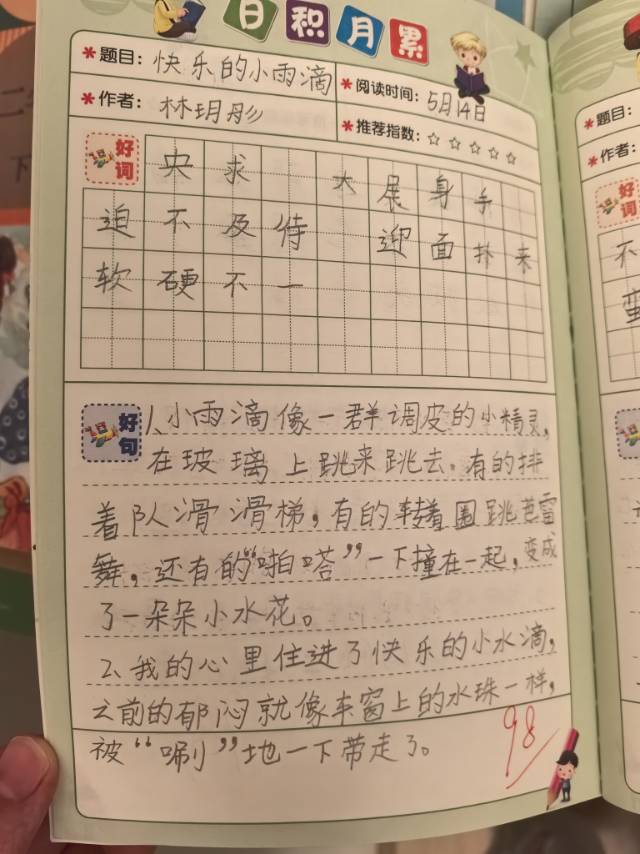 日积月累
*题目：快乐的小雨滴
*阅读时间：5月14日
*作者：林玥彤
*推荐指数：☆☆☆☆☆
好词
央求 大展身手
迫不及待 迎面扑来
软硬不一
好句
1、小雨滴像一群调皮的小精灵，
在玻璃上跳来跳去。有的排
着队滑滑梯，有的转着圈跳芭蕾
舞，还有的“啪嗒”一下撞在一起，变成
了一朵朵小水花。
2、我的心里住进了快乐的小水滴，
之前的郁闷就像车窗上的水珠一样，
被“唰”地一下带走了。
98
*题目：
*作者：
好词
不
蛮